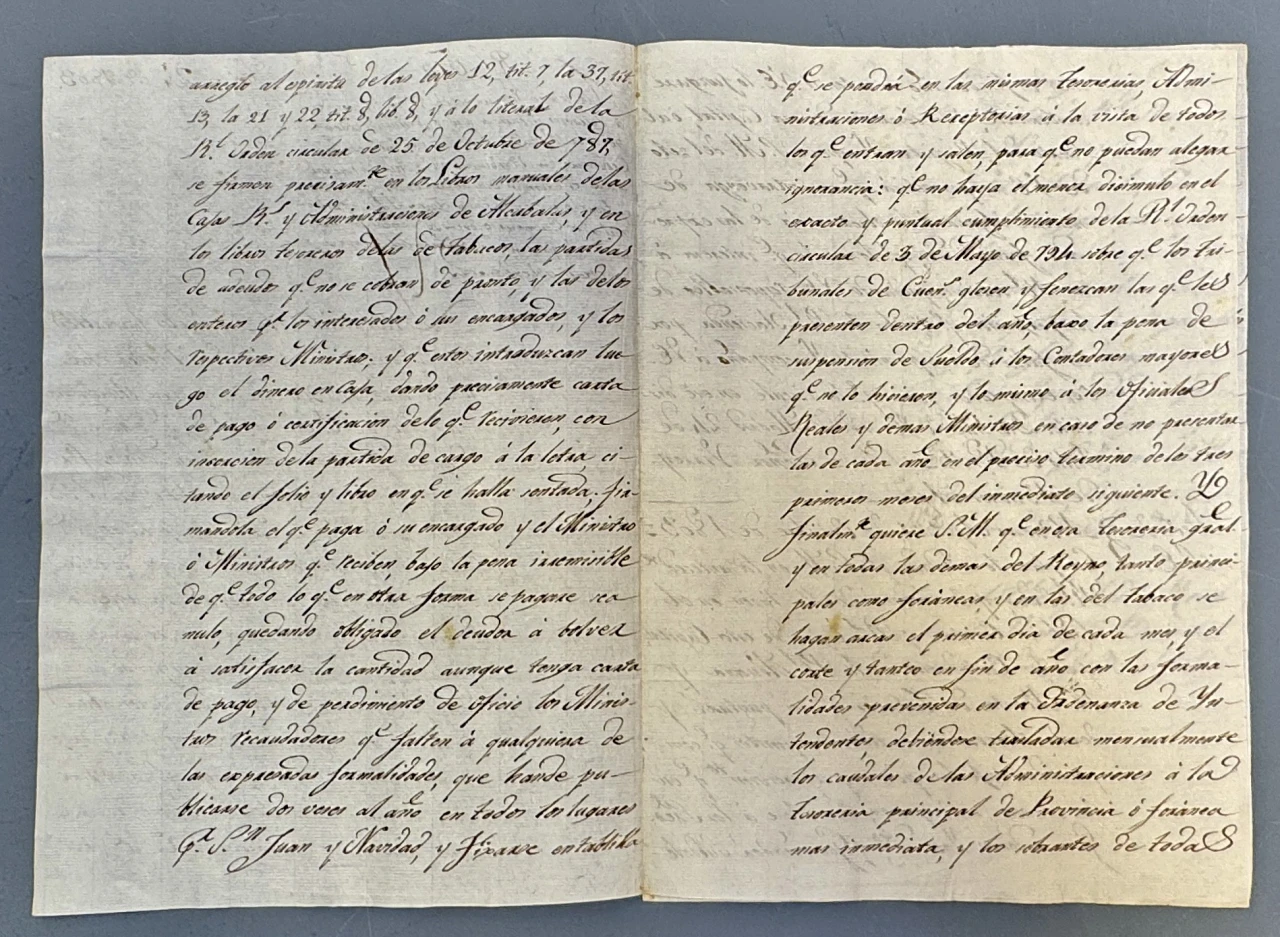 arreglo al espiritu de las leyes 12, tit. 7, la 37, tit.
13, la 21 y 22, tit. 8, lib. 8, y à lo literal de la
Rl. Orden circular de 25 de Octubre de 787,
se firmen precisamte. en los Libros manuales de las
Cajas Rs. y Administraciones de Alcabalas, y en
los libros tesoreros de las de tabacos, las partidas
de adeudos qe. no se cobran de pronto, y las de los
enteros pr. los interesados ó sus encargados, y los
respectivos Ministros; y qe. estos introduzcan lue-
go el dinero en Caja, dando precisamente carta
de pago ó certificacion de lo qe. recivieren, con
insercion de la partida de cargo á la letra, ci-
tando el folio y libro en qe. se halla sentada, fir-
mandola el qe. paga ó su encargado y el Ministro
ó Ministros qe. reciben, bajo la pena irremisible
de qe. todo lo qe. en otra forma se pagare sea
nulo, quedando obligado el deudor à bolver
à satisfacer la cantidad aunque tenga carta
de pago, y de perdimiento de oficio los Minis-
tros recaudadores qe. falten à qualquiera de
las expresadas formalidades, que hande pu-
blicarse dos veces al año en todos los lugares
pr. Sn. Juan y Navidad, y fixarse en tablilla
qe. se pondrá en las mismas tesorerias, Admi-
nistraciones ó Receptorias à la vista de todos
los qe. entran y salen, para qe. no puedan alegar
ignorancia: qe. no haya el menor disimulo en el
exacto y puntual cumplimiento de la Rl. Orden
circular de 3 de Mayo de 794 sobre qe. los Tri-
bunales de Cuens. glosen y fenezcan las qe. les
presenten dentro del año, baxo la pena de
suspension de Sueldo à los Contadores mayores
qe. no lo hicieren, y lo mismo à los Oficiales
Reales y demas Ministros en caso de no presentar
las de cada año en el preciso termino de los tres
primeros meses del inmediato siguiente. Y
finalmte. quiere S. M. qe. en esa Tesoreria gral.
y en todas las demas del Reyno, tanto princi-
pales como foráneas y en las del tabaco se
hagan arcas el primer dia de cada mes, y el
corte y tanteo en fin de año con las forma-
lidades prevenidas en la Ordenanza de Yn-
tendentes, debiendose trasladar mensualmente
los caudales de las Administraciones à la
tesoreria principal de Provincia ó foránea
mas inmediata, y los sobrantes de todas